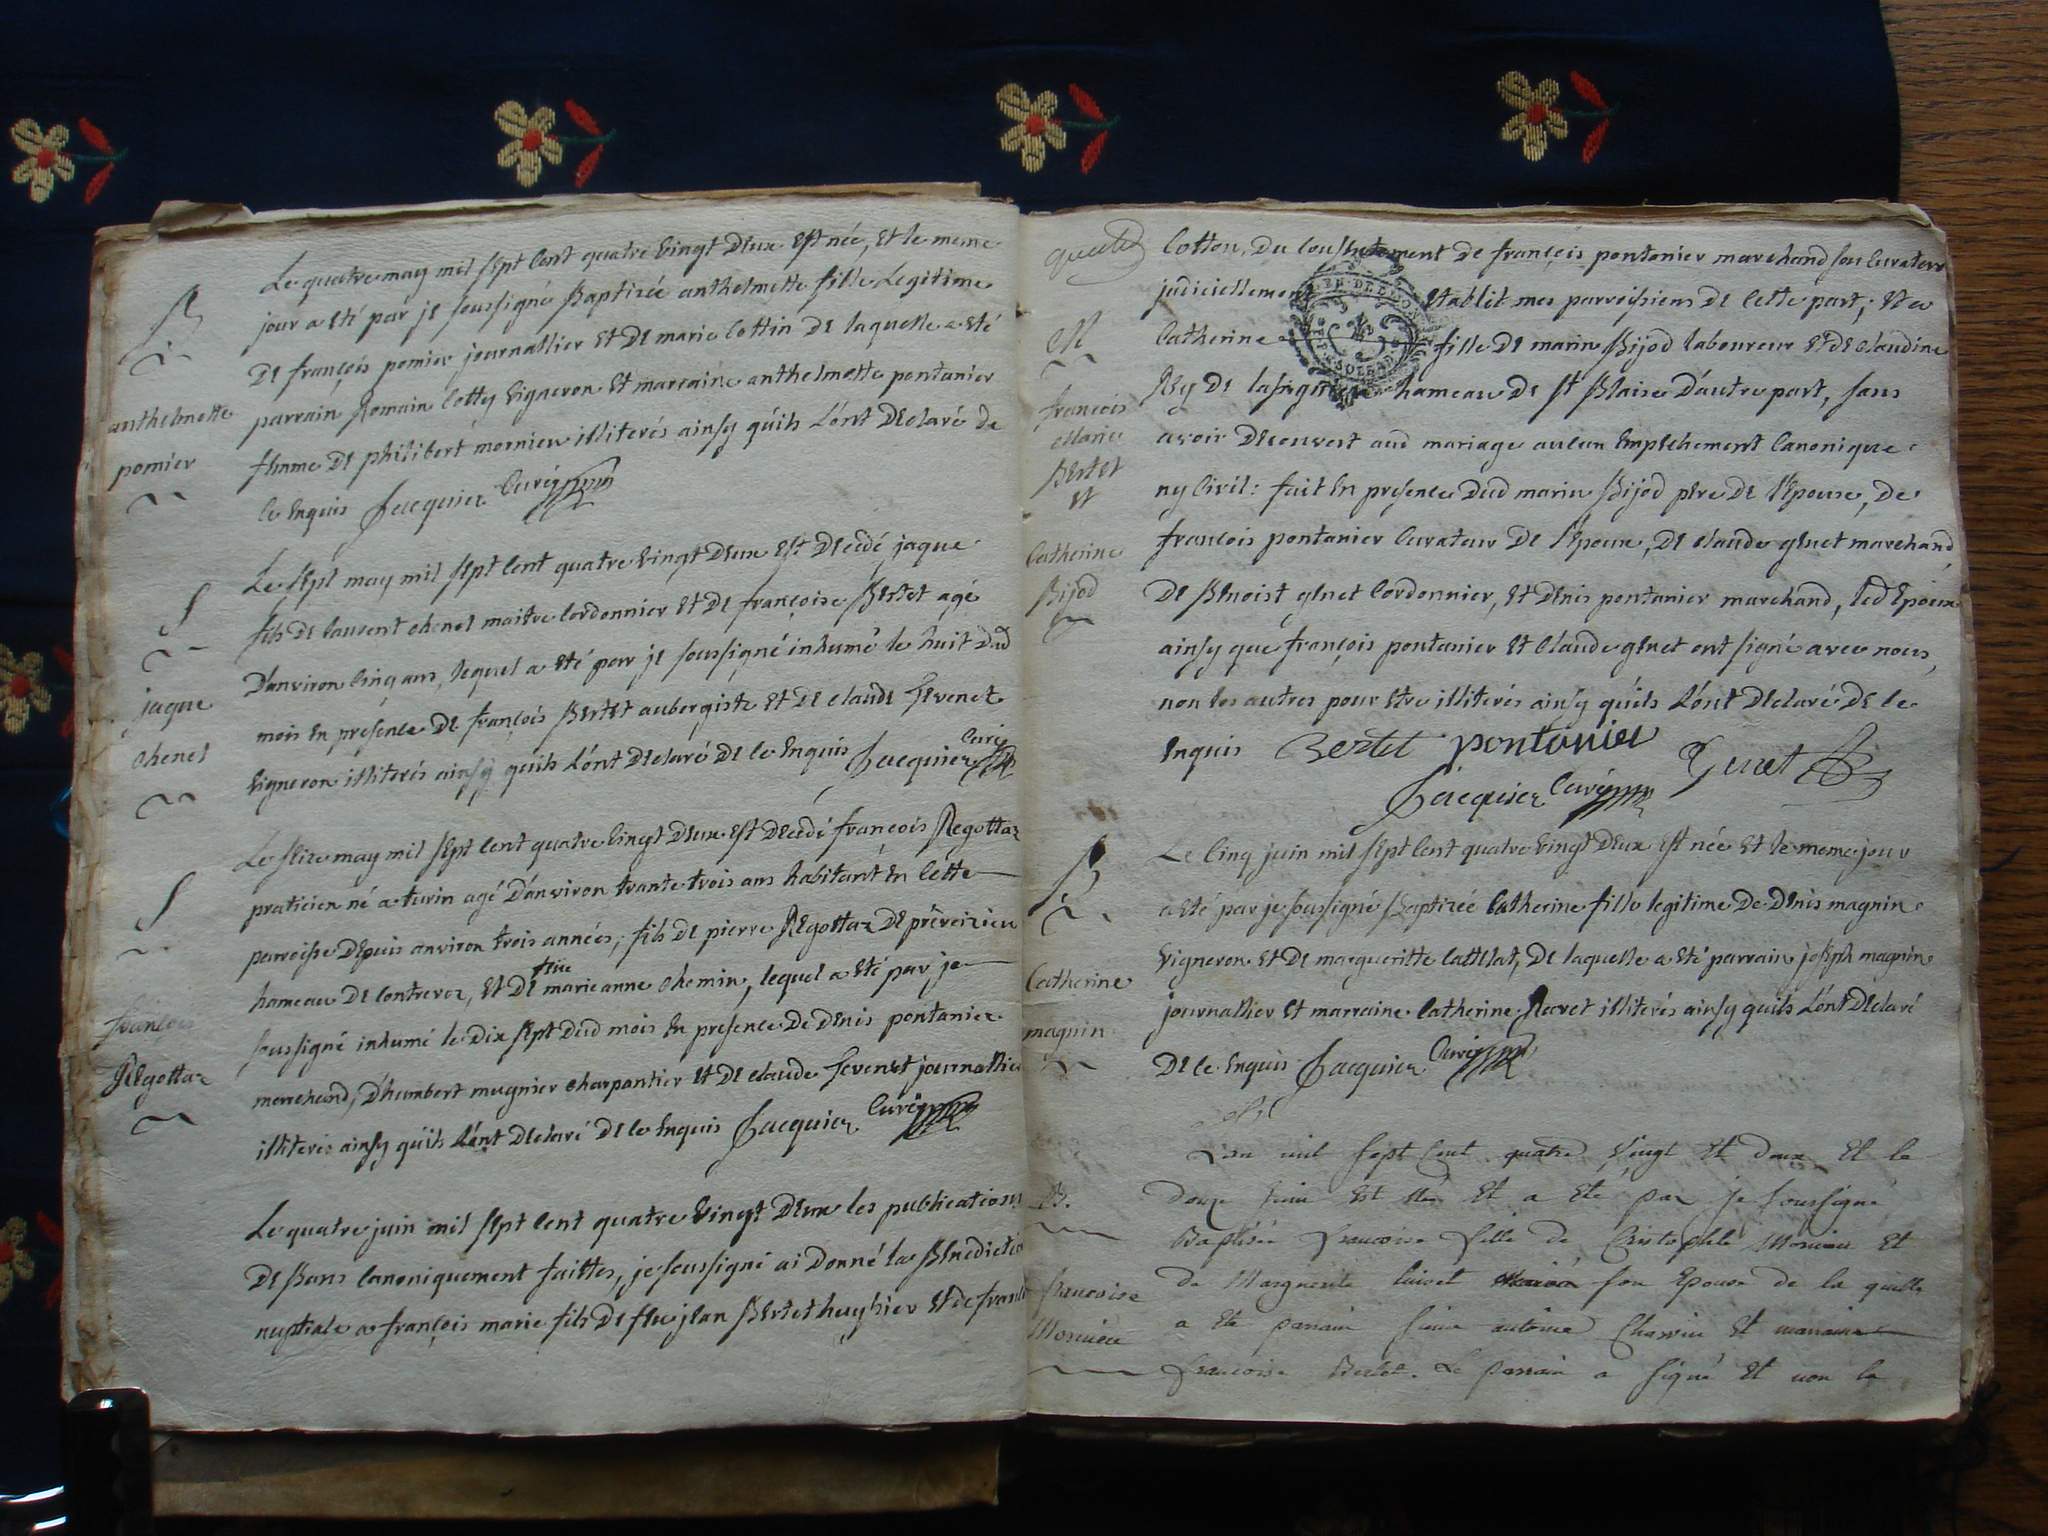 Le quatre may mil sept cent quatre vingt deux est née, et le meme
jour a eté par je soussigné Baptizée anthelmette fille Legitime
B
de françois pomier journallier et de marie Cottin de laquelle a eté
parrain Romain Cottey vigneron et marraine anthelmette pontanier
anthelmette
pomier
femme de philibert mornieu illiterés ainsy qu'ils L'ont declaré de
ce enquis Jacquier Curé
Le sept may mil sept cent quatre vingt deux est decédé jaque
S
fils de laurent chenel maitre Cordonnier et de françoise Bertet agé
D'anviron cinq ans, lequel a eté par je soussigné inhumé le huit dud
jaque
chenel
mois en presence de françois Bertet aubergiste et de claude sevenet
vigneron illiterés ainsy qu'ils L'ont declaré de ce enquis Jacquier Curé
Le seize may mil sept cent quatre vingt deux est decédé françois Regottaz
S
praticien né a turin agé d'anviron trante trois ans habitant en cette
parroisse depuis anviron trois années, fils de pierre Regottaz de
hameau de Contrevoz, et de feue marieanne chemin, lequel a eté par je
françois
Regottaz
soussigné inhumé le dix sept dud mois en presence de denis pontanier
marchand, d'humbert mugnier charpantier et de claude sevenet journallier
illiterés ainsy qu'ils L'ont declaré de ce enquis Jacquier Curé
Le quatre juin mil sept cent quatre vingt deux les publications
de Bans canoniquement faittes, je soussigné ai donné la Benediction
nuptiale a françois marie fils de feu jean Bertet huyssier et de
Cotton, du consentement de françois pontanier marchand son Curateur
judiciellement etablit mes parroissiens de cette part; et a
M
Catherine fille de marin Bijod laboureur et de claudine
Rey de hameau de St Blaise d'autre part, sans
françois
marie
Bertet
et
Catherine
Bijod
avoir decouvert aud mariage aucun empechement canonique
ny civil: fait en presence dud marin Bijod pere de l'Epouse, de
françois pontanier Curateur de l'Epoux, de claude genet marchand
de Benoist genet Cordonnier, et denis pontanier marchand, led Epoux
ainsy que françois pontanier et Claude genet ont signé avec nous,
non les autres pour etre illiterés ainsy qu'ils L'ont declaré de ce
enquis Bertet pontanier Genet
Jacquier Curé
Le cinq juin mil sept cent quatre vingt deux est née et le meme jour
B
a eté par je soussigné Baptizée Catherine fille legitime de denis magnin
vigneron et de margueritte Cattelat, de laquelle a eté parrain joseph magnin
Catherine
magnin
journallier et marraine Catherine illiterés ainsy qu'ils L'ont declaré
de ce enquis Jacquier Curé
L'an mil sept cent quatre vingt et deux et le
B.
douze juin est née et a eté par je soussigné
Baptisée francoise fille de Cristophle Mornieu et
francoise
Mornieu
de Marguerite son Epouse de la quelle
a eté parrain sieur antoine et marraine
francoise Bertet. Le parrain a signé et non la